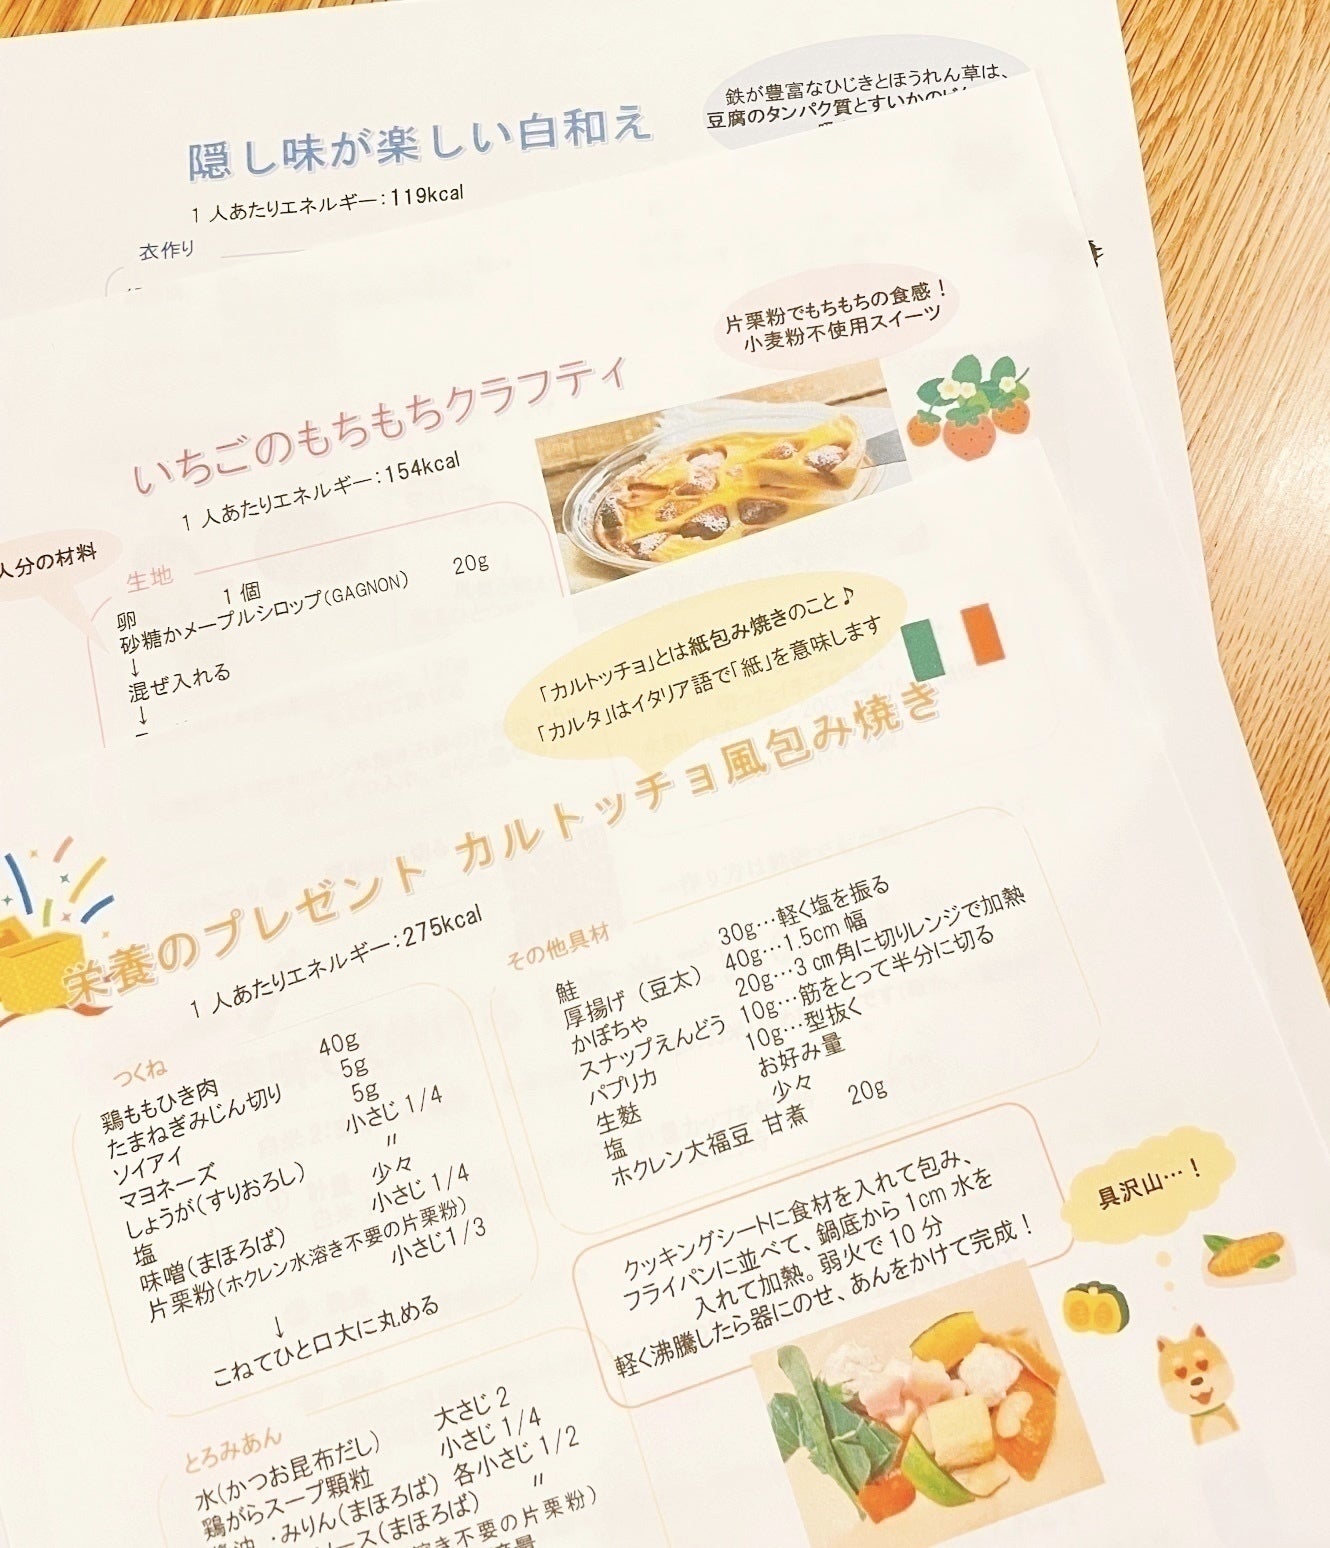 鉄が豊富なひじきとほうれん草は、
豆腐のタンパク質とすいかの
隠し味が楽しい白和え
1 人あたりエネルギー:119kcal
衣作り
片栗粉でもちもちの食感!
小麦粉不使用スイーツ
いちごのもちもちクラフティ
1 人あたりエネルギー:154kcal
人分の材料
生地
卵 1個
砂糖かメープルシロップ(GAGNON) 20g
↓
混ぜ入れる
↓
「カルトッチョ」とは紙包み焼きのこと♪
「カルタ」はイタリア語で「紙」を意味します
栄養のプレゼント カルトッチョ風包み焼き
1 人あたりエネルギー:275kcal
つくね
鶏ももひき肉 40g
たまねぎみじん切り 5g
ソイアイ 5g
マヨネーズ 小さじ 1/4
しょうが(すりおろし) 〃
塩 少々
味噌(まほろば) 小さじ 1/4
片栗粉(ホクレン水溶き不要の片栗粉)
小さじ1/3
↓
こねてひと口大に丸める
その他具材
鮭 30g…軽く塩を振る
厚揚げ(豆太) 40g…1.5cm 幅
かぼちゃ 20g…3 ㎝角に切りレンジで加熱
スナップえんどう 10g…筋をとって半分に切る
パプリカ 10g…型抜く
生麩 お好み量
塩 少々
ホクレン大福豆 甘煮 20g
クッキングシートに食材を入れて包み、
フライパンに並べて、鍋底から 1cm 水を
入れて加熱。弱火で 10 分
軽く沸騰したら器にのせ、あんをかけて完成!
具沢山…!
とろみあん
水(かつお昆布だし) 大さじ 2
鶏がらスープ顆粒 小さじ 1/4
・みりん(まほろば) 各小さじ 1/2
ース(まほろば) 〃
溶き不要の片栗粉)